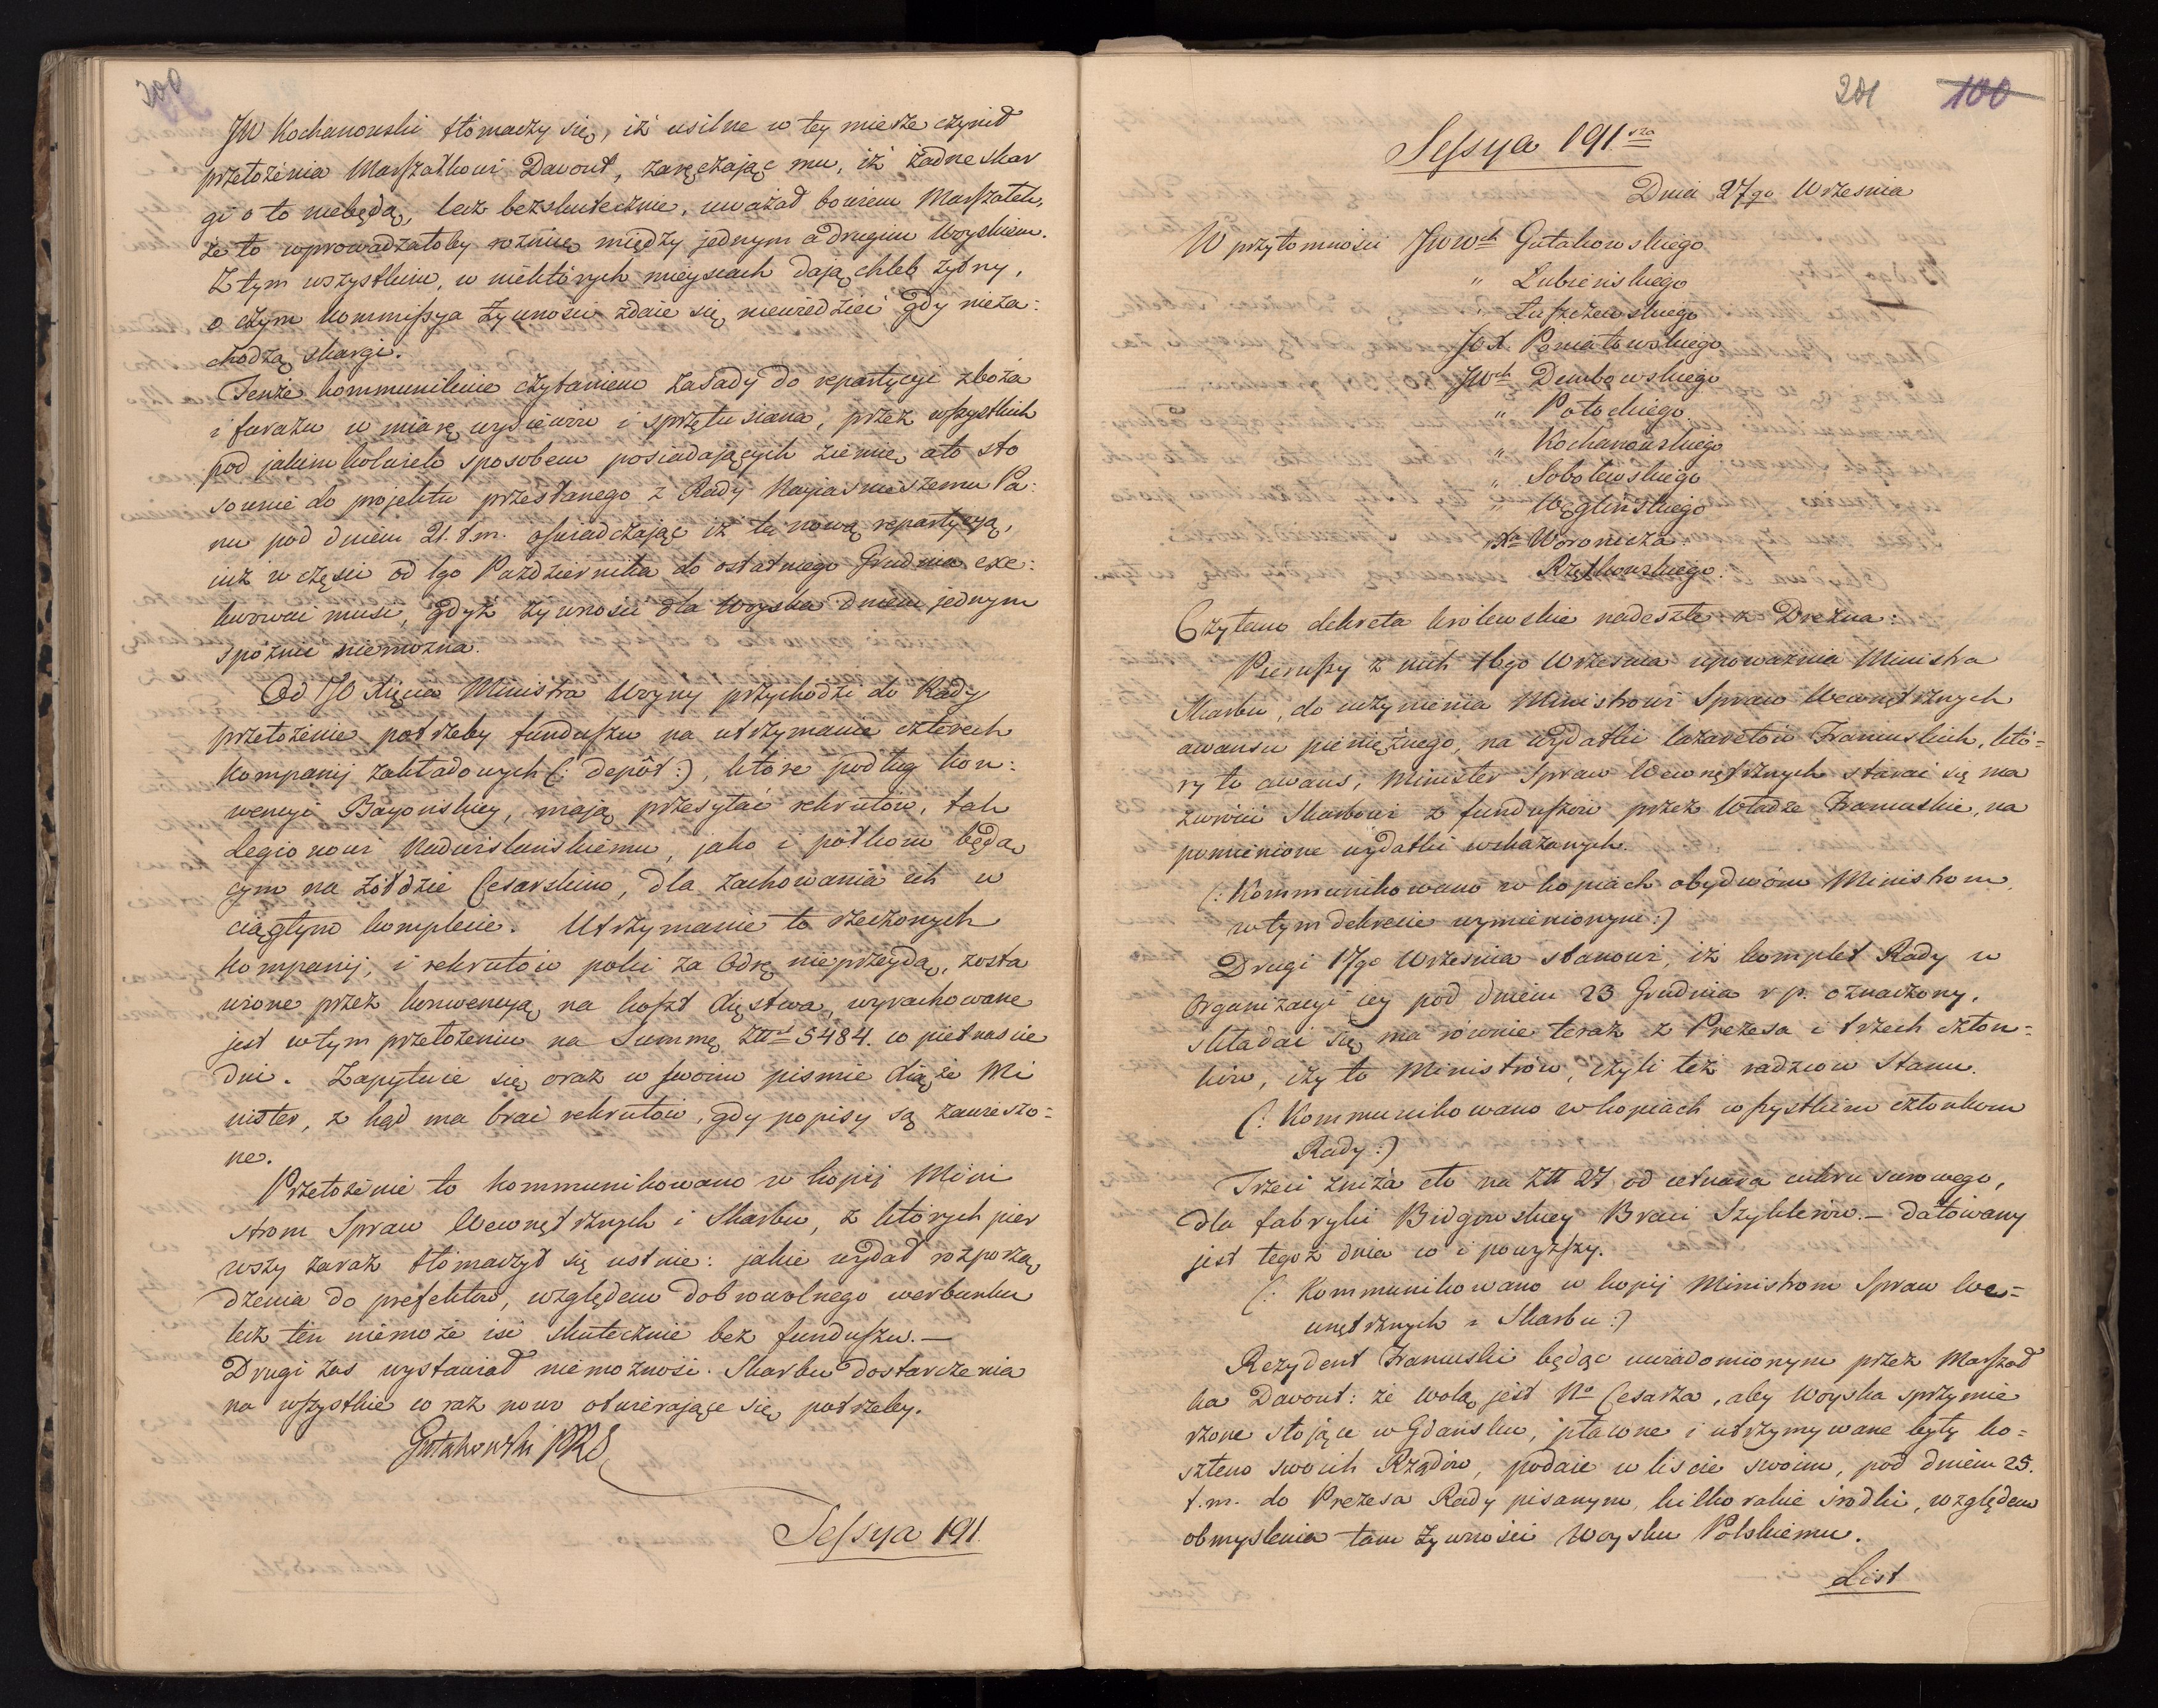 200
JW Kochanowski tłomaczy się, iż usilne w tey mierze czynił
przełożenia Marszałkowi Davout, zaręczając mu, iż żadne skar
gi o to niebędą, lecz bezskutecznie, uważał bowiem Marszałek,
że to wprowadzałoby rożnicę między jednym a drugim Woyskiem.
Z tym wszystkim, w niektórych mieyscach dają chleb żytny,
o czym Kommissya Żywności zdaie się niewiedzieć gdy nieza:
chodzą skargi.
Tenże kommunikuie czytaniem zasady do repartycyi zboża
i furażu w miarę wysiewu i sprzętu siana, przez wszystkich
pod jakimkolwiek sposobem posiadających ziemię, a to sto
sownie do projektu przesłanego z Rady Nayiaśnieyszemu Pa:
nu pod dniem 21. t.m. oświadczając iż tę nową repartycyą,
iuż w części od 1go Października do ostatniego Grudnia exe:
kwować musi, gdyż żywności dla Woyska dniem jednym
spoźnić niemożna.
Od JO Xięcia Ministra Woyny przychodzi do Rady
przełożenie potrzeby funduszu na utrzymanie czterech
kompanij zakładowych (: depôt :), które podług kon:
wencyi Bayońskiey, mają przesyłać rekrutów, tak
Legionowi Nadwiślańskiemu, jako i półkom będą
cym na żółdzie Cesarskim, dla zachowania ich w
ciągłym komplecie. Utrzymanie to rzeczonych
kompanij, i rekrutów poki za Odrę nieprzeydą, zosta
wione przez konwencyą na koszt Xięstwa, wyrachowane
jest w tym przełożeniu na Summę Złł 5484. co pietnaście
dni. Zapytuie się oraz w swoim pismie Xiąże Mi
nister, z kąd ma brać rekrutów, gdy popisy są zawieszo=
ne.
Przełożenie to kommunikowano w kopij Mini
strom Spraw Wewnętrznych i Skarbu, z których pier
wszy zaraz tłomaczył się ustnie: jakie wydał rozporzą
dzenia do prefektów, względem dobrowolnego werbunku
lecz ten niemoże iść skutecznie bez funduszu. —
Drugi zas wystawiał niemożność Skarbu dostarczenia
na wszystkie co raz nowo otwierające się potrzeby.
Gutakowski PRS
Sessya 191.
201 100
Sessya 191sza
Dnia 27go Września
W przytomności JWWch Gutakowskiego
" Łubieńskiego
" Łuszczewskiego
JO X. Poniatowskiego
JWch Dembowskiego
" Potockiego
" Kochanowskiego
" Sobolewskiego
" Węglińskiego
Xa Woronicza
Rzętkowskiego.
Czytano dekreta krolewskie nadeszłe z Drezna:
Pierwszy z nich 16go Września upoważnia Ministra
Skarbu, do uczynienia Ministrowi Spraw Wewnętrznych
awansu pieniężnego, na wydatki lazaretów Francuskich, któ=
ry to awans, Minister Spraw Wewnętrznych starać się ma
zwrócić Skarbowi z funduszów przez Władze Francuskie, na
pomienione wydatki wskazanych.
(: Kommunikowano w kopiach obydwóm Ministrom
w tym dekrecie wymienionym :)
Drugi 17go Września stanowi, iż komplet Rady w
Organizacyi iey pod dniem 23 Grudnia r. p. oznaczony,
składać się ma równie teraz z Prezesa i trzech człon=
ków, czy to Ministrów, czyli też radzców Stanu.
(: Kommunikowano w kopiach wszystkim członkom
Rady :)
Trzeci zniża cło na Złł 27 od cetnara cukru surowego,
dla fabryki Bidgowskiey Braci Szyklerów. — datowany
jest tegoż dnia co i powyższy.
(: Kommunikowano w kopij Ministrom Spraw We=
wnętrznych i Skarbu :)
Rezydent Francuski będąc uwiadomionym przez Marszał
ka Davout: że wolą jest No Cesarza, aby Woyska sprzymie
rzone stojące w Gdańsku, płacone i utrzymywane były ko=
sztem swoich Rządów, podaie w liście swoim, pod dniem 25.
t.m. do Prezesa Rady pisanym, kilkorakie środki, względem
obmyslenia tam żywności Woysku Polskiemu.
List